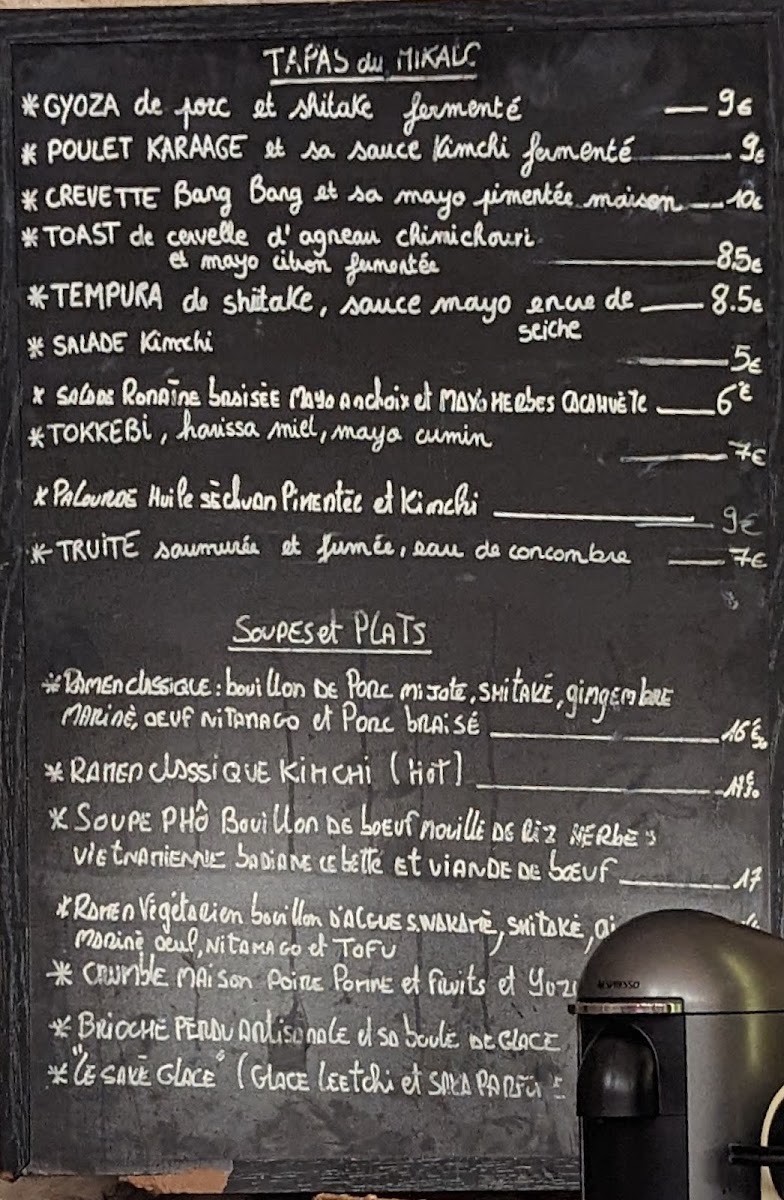 TAPAS du MIKADO
*GYOZA de porc et shitake fermenté — 9€
* POULET KARAAGE et sa sauce Kimchi fermenté — 9€
* CREVETTE Bang Bang et sa mayo pimentée maison — 10€
*TOAST de cervelle d'agneau chimichouri
et mayo citron fermentée — 8.5€
*TEMPURA de shiitake, sauce mayo encre de — 8.5€
seiche
* SALADE Kimchi — 5€
* SALADE Romaine baisisée Mayo anchoix et MAYO HERbES CACAHUÈTE — 6€
*TOKKEBI, harissa miel, mayo cumin — 7€
* PALOURDE Huile sèchuan Pimentée et Kimchi — 9€
* TRUITE saumurée et fumée, eau de concombre — 7€
SOUPES et PLATS
*RAMEN CLASSIQUE : bouillon DE Porc mijoté, SHITAKÉ, gingembre
MARINÈ, OEUF NITAMAGO et Porc braisé — 16€50
* RAMEN CLASSIQUE KIMCHI (HOT) — 17€50
* SOUPE PHÔ Bouillon DE boeuf nouille DE Riz HERbES
VIETNAMIENNE bADIANE CEbETTE ET VIANDE DE bœuf — 17
*RAMEN Végétarien bouillon D'ALGUES, WAKAMÈ, SHITAKÈ,
Marinè oeuf, NITAMAGO et TOFU
* CRUMbLE MAISON POIRE POMME et fruits et
* BRIOCHE PERDU Artisanale et sa boule DE GLACE
* "LE SAKÈ GLACÈ" (GLACE Leetchi et
NESPRESSO